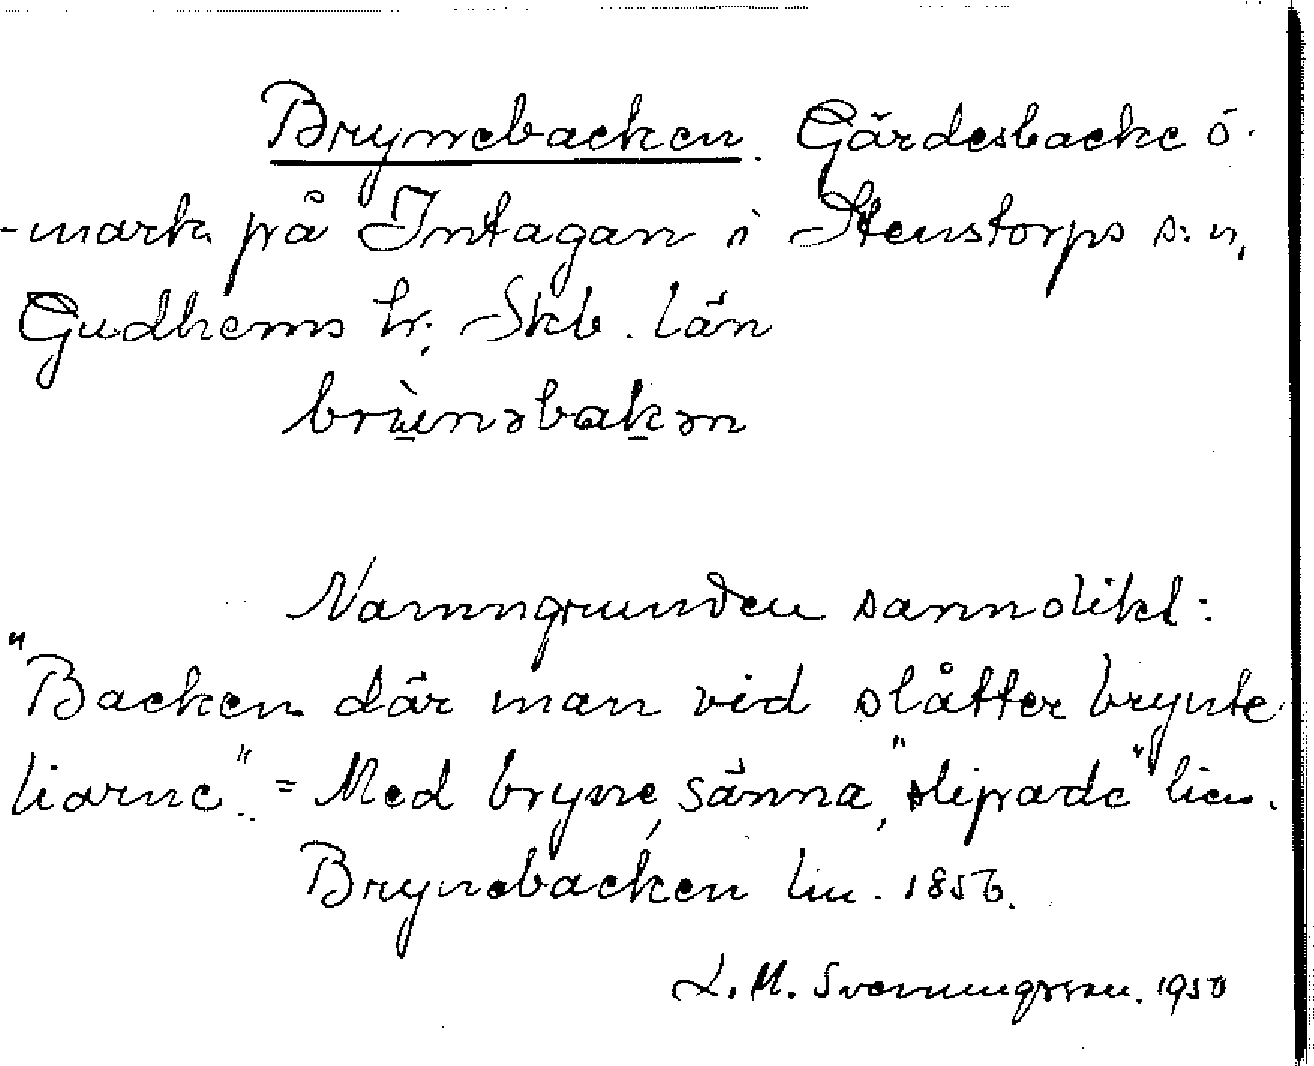 Brynebacken. Gärdesbacke o.
-mark på Intagan i Stenstorps s:n,
Gudhems hr; Skb. län
brùnəbakən
Namngrunden sannolikt:
"Backen där man vid slåtter brynte
liarne". = Med bryne, sänna, "slipade" lien.
Brynebacken lm. 1856.
L. M. Svenungsson. 1950